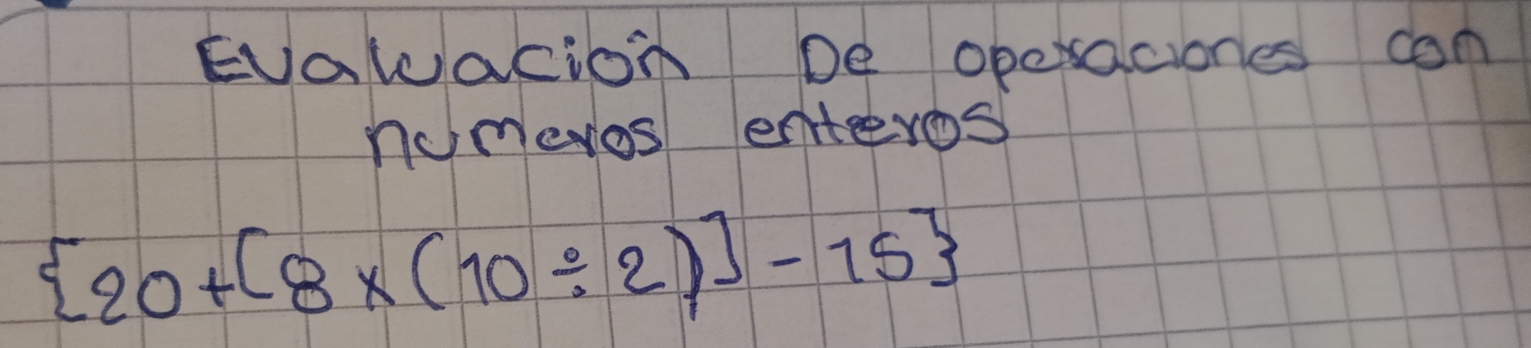 Evaluación De operaciones con
numeros enteros
{20+[8x(10÷2)]-15}